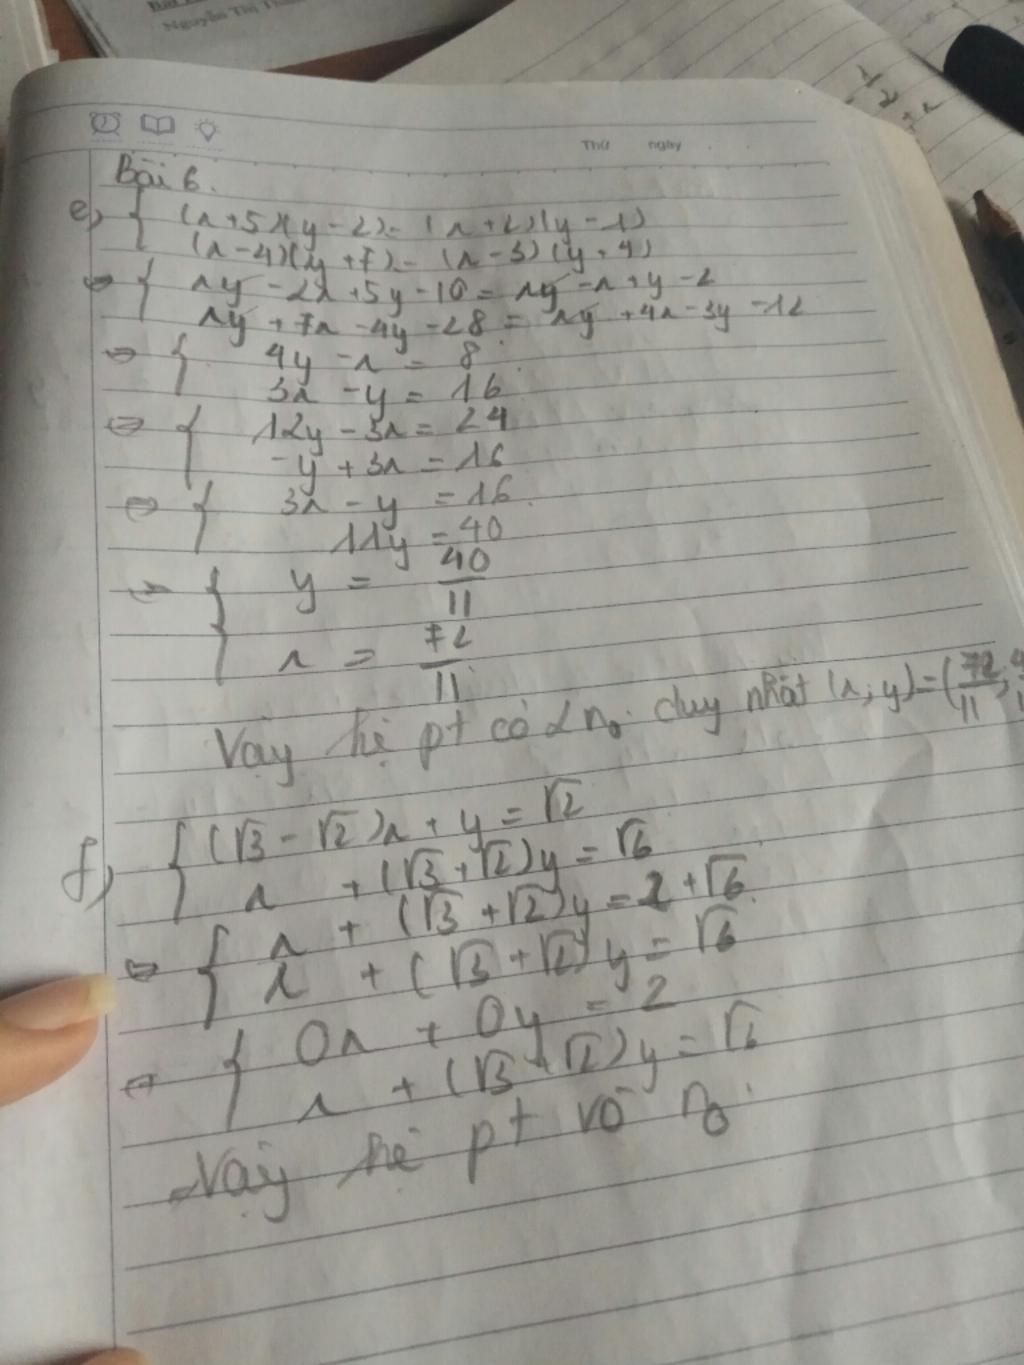 Nguyễn Thị
Thứ ngày
Bài 6.
e) { (x+5)(y-2) = (x+2)(y-1)
(x-4)(y+7) = (x-3)(y+4)
⇔ { xy -2x+5y-10 = xy -x+y-2
xy +7x -4y-28 = xy +4x-3y -12
⇔ { 4y -x = 8
3x -y = 16
⇔ { 12y -3x = 24
-y + 3x = 16
⇔ { 3x - y = 16
11y = 40
⇔ { y = 40/11
x = 72/11
Vậy hệ pt có 1 no duy nhất (x; y) = (72/11;
f) { (√3 - √2)x + y = √2
x + (√3+√2)y = √6
⇔ { x + (√3+√2)y = 2+√6
x + (√3+√2)y = √6
⇔ { 0x + 0y = 2
x + (√3+√2)y = √6
Vậy hệ pt vô no